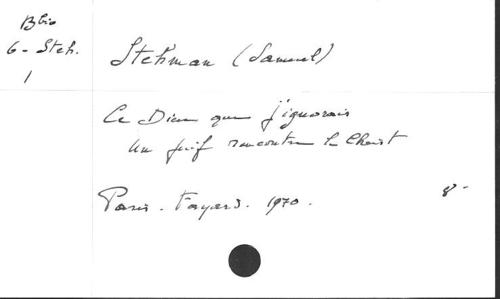 Bbio
6 - Steh.
1
Stehman (Samuel)
Ce Dieu que j'ignorais
Un juif rencontre le Christ
Paris. Fayard. 1970.
8° -